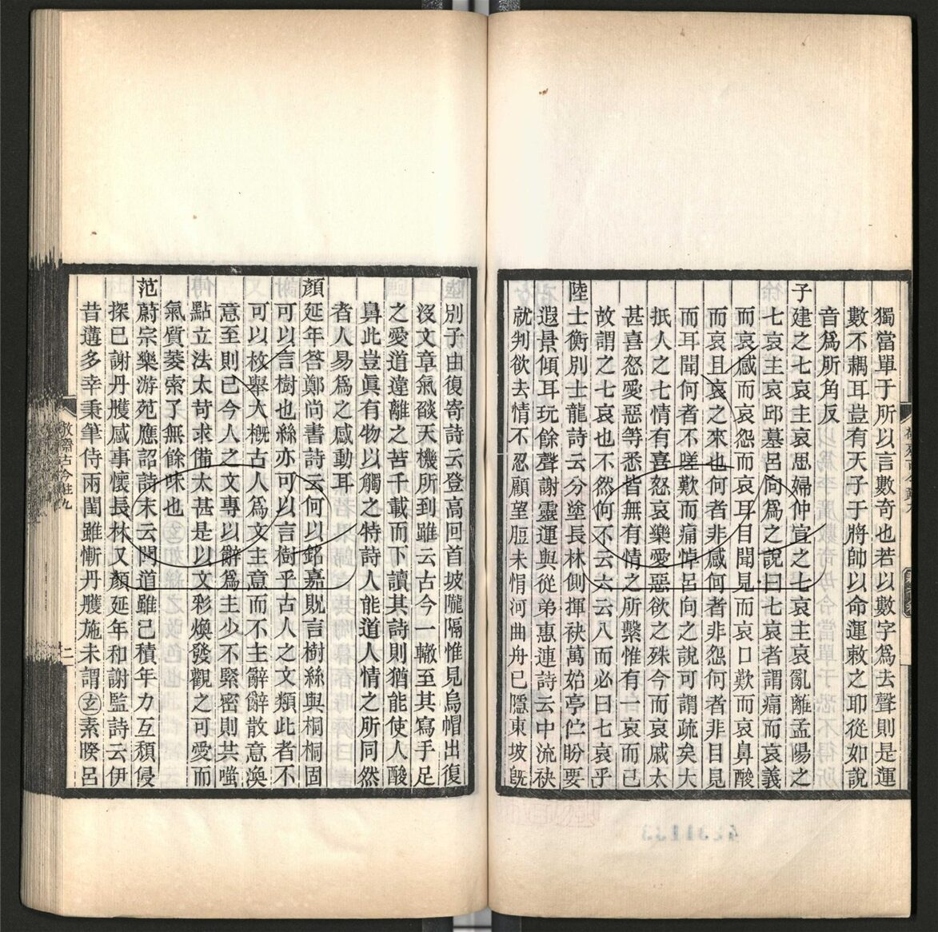 獨當單于所以言數奇也若以數字爲去聲則是運
數不耦耳豈有天子于將帥以命運敕之耶從如說
音爲所角反
子建之七哀主哀思婦仲宣之七哀主哀亂離孟陽之
七哀主哀邱墓呂向爲之說曰七哀者謂痛而哀義
而哀感而哀怨而哀耳目聞見而哀口歎而哀鼻酸
而哀且哀之來也何者非感何者非怨何者非目見
而耳聞何者不嗟歎而痛悼呂向之說可謂疏矣大
抵人之七情有喜怒哀樂愛惡欲之殊今而哀戚太
甚喜怒愛惡等悉皆無有情之所繫惟有一哀而已
故謂之七哀也不然何不云六云八而必曰七哀乎
陸士衡別士龍詩云分塗長林側揮袂萬始亭伫盼要
遐景傾耳玩餘聲謝靈運與從弟惠連詩云中流袂
就判欲去情不忍顧望脰未悁河曲舟已隱東坡旣
別子由復寄詩云登高回首坡隴隔惟見烏帽出復
沒文章氣燄天機所到雖云古今一轍至其寫手足
之愛道違離之苦千載而下讀其詩則猶能使人酸
鼻此豈眞有物以觸之特詩人能道人情之所同然
者人易爲之感動耳
顏延年答鄭尚書詩云何以銘嘉貺言樹絲與桐桐固
可以言樹也絲亦可以言樹乎古人之文類此者不
可以枚舉大槪古人爲文主意而不主辭辭散意渙
意至則已今人之文專以辭爲主少不緊密則共嗤
點立法太苛求備太甚是以文彩煥發觀之可愛而
氣質萎索了無餘味也
范蔚宗樂游苑應詔詩末云聞道雖已積年力互頹侵
探已謝丹雘感事懷長林又顏延年和謝監詩云伊
昔遘多幸秉筆侍兩閨雖慚丹雘施未謂玄素睽呂
敬齋古今黈九
二